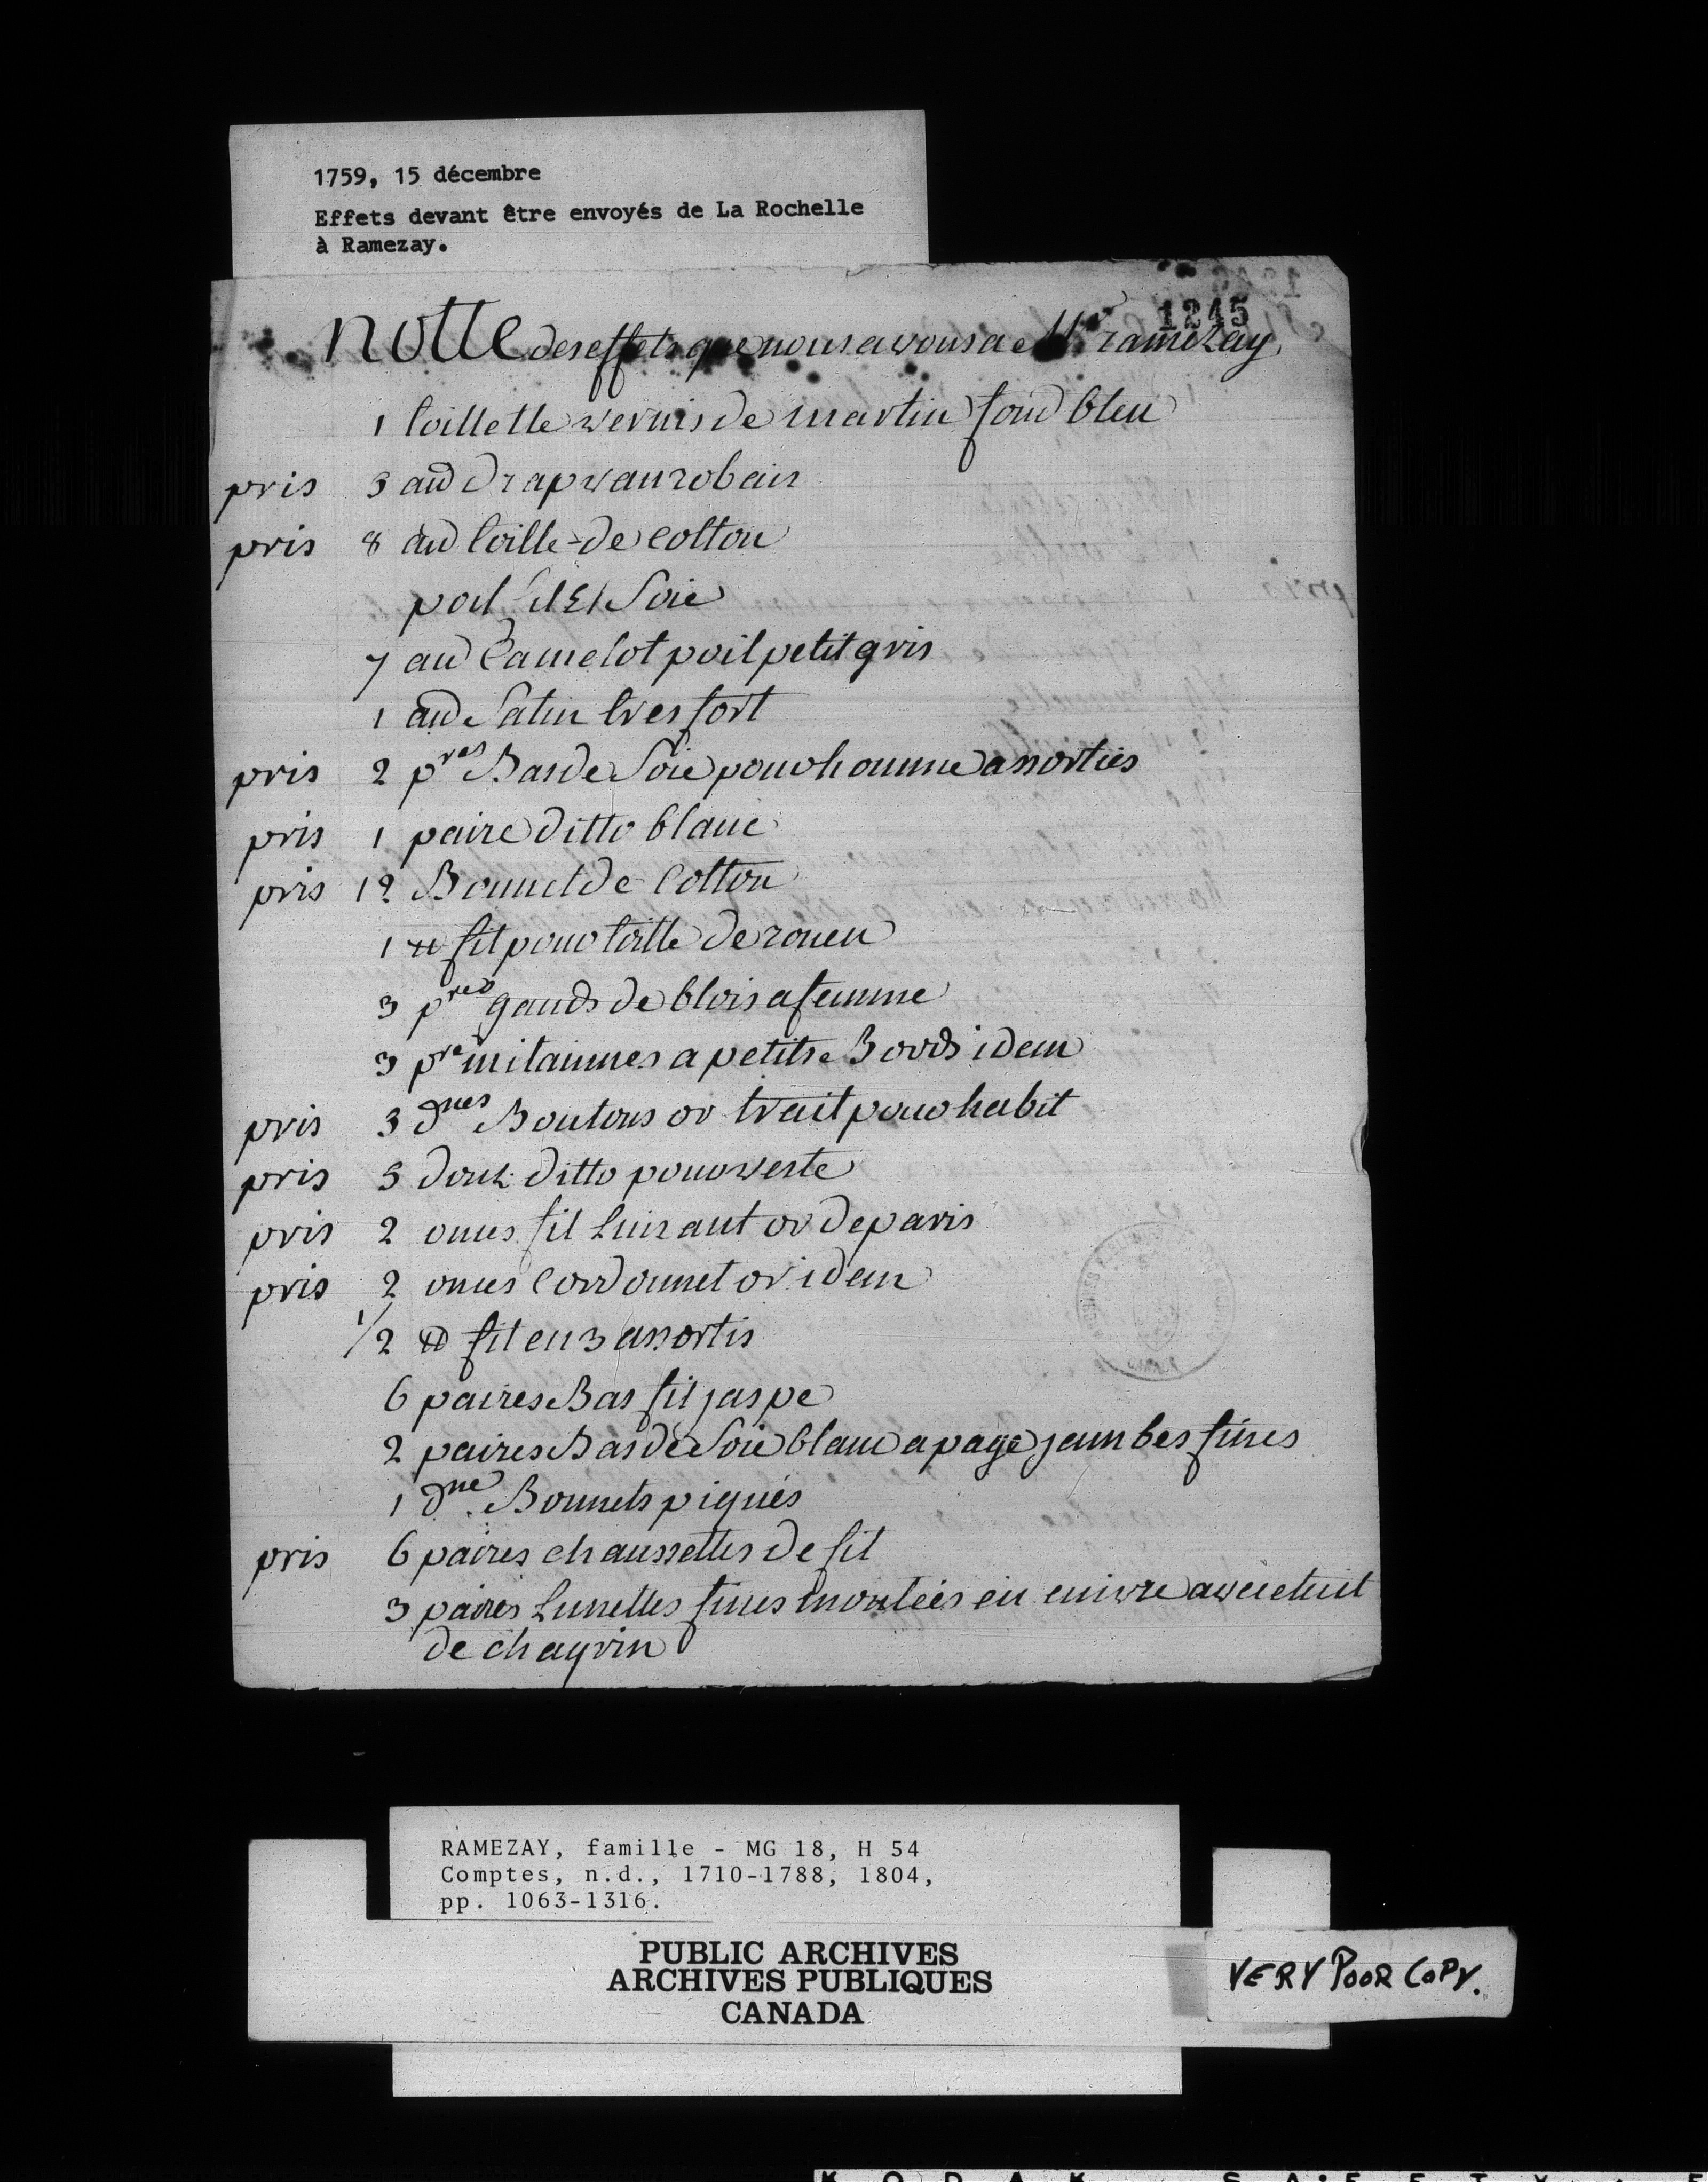 1759, 15 décembre
Effets devant être envoyés de La Rochelle
à Ramezay.
1245
notte des effets que nous avons a Mr ramezay
1 toillette vernis de martin fond bleu
pris 3 au drap vanrobais
pris 8 au toille de cotton
poil fil et soie
7 au Camelot poil petit gris
1 au Satin tres fort
pris 2 pres Bas de Soie pour homme assorties
pris 1 paire ditto blanc
pris 12 Bonnet de Cotton
1 ℔ fil pour toille de rouen
3 pres gands de blois a femme
3 pre mitainnes a petits Bords idem
pris 3 dnes Boutons or trait pour habit
pris 3 douz ditto pour veste
pris 2 onces fil luisant or de paris
pris 2 onces Cordonnet or idem
1/2 ℔ fil en 3 assortis
6 paires Bas fil jaspe
2 paires Bas de Soie blanc a page jambes fines
1 dne Bonnets piqués
pris 6 paires chaussettes de fil
3 paires Lunettes fines montées en cuivre avec etuit
de chagrin
RAMEZAY, famille - MG 18, H 54
Comptes, n.d., 1710-1788, 1804,
pp. 1063-1316.
PUBLIC ARCHIVES
ARCHIVES PUBLIQUES
CANADA
VERY POOR COPY.